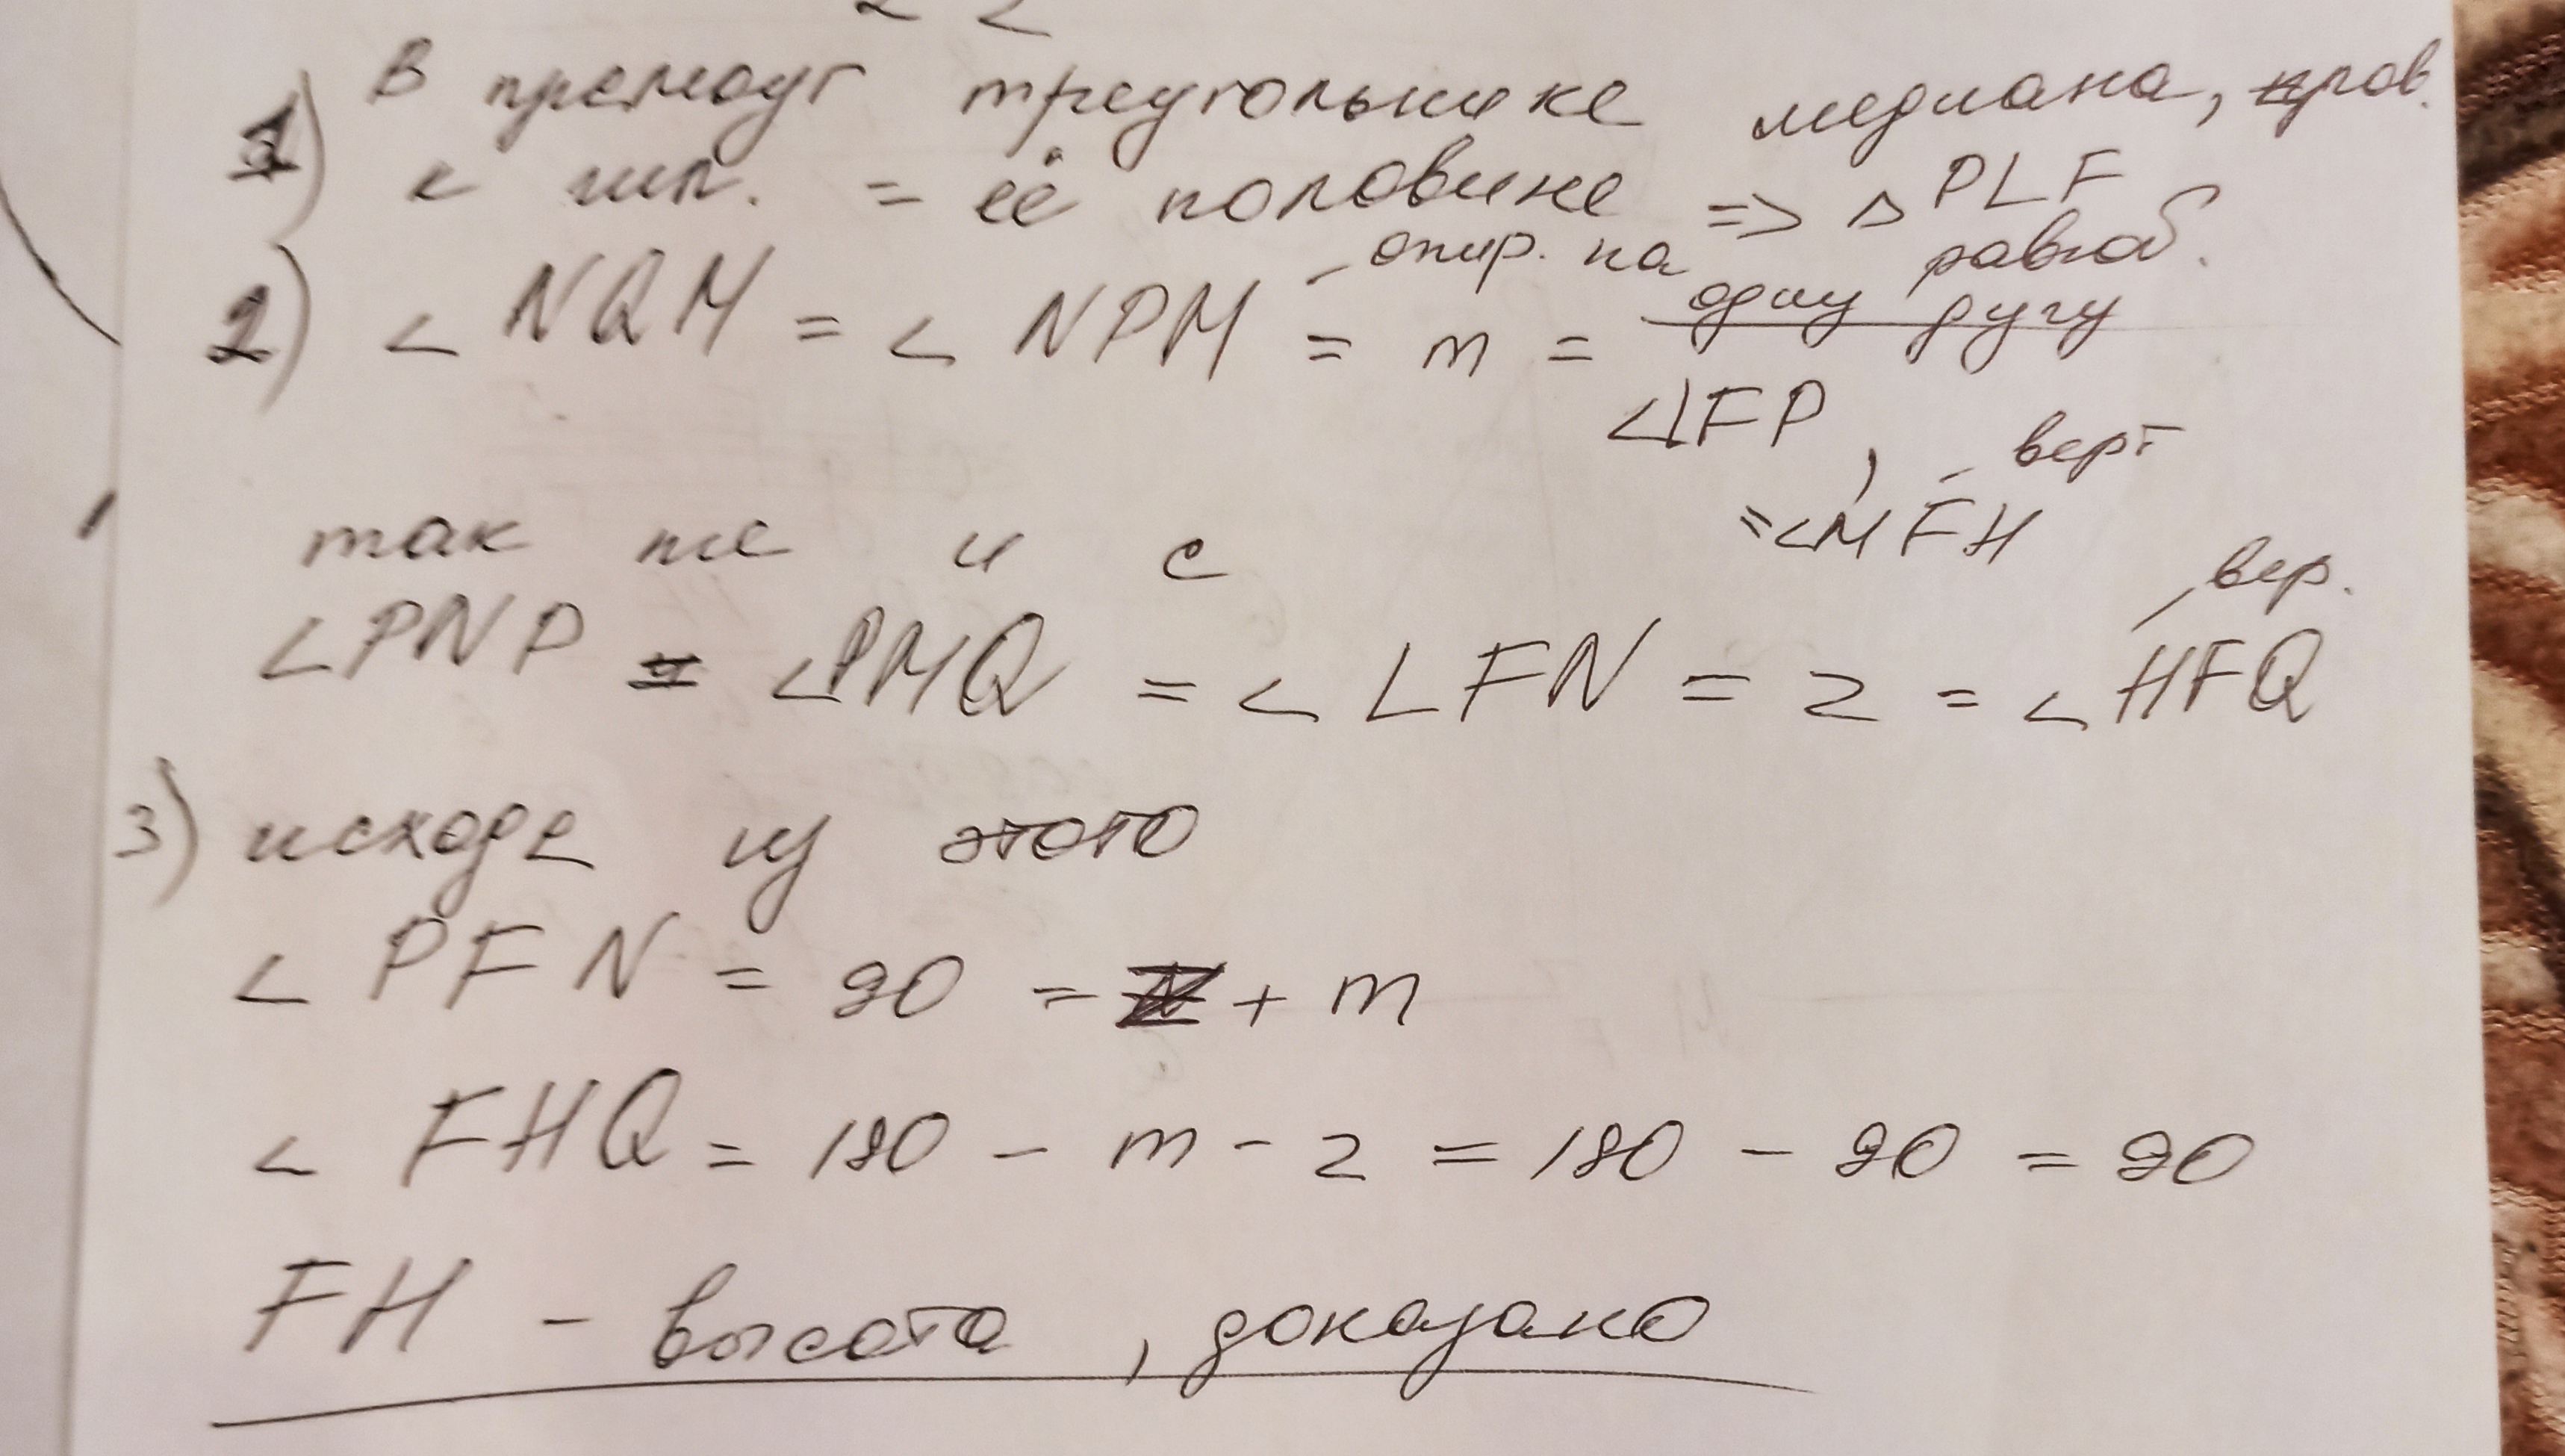 1) В прямоуг треугольнике медиана, пров.
к гип. = её половине => △PLF
равноб.
2) ∠NQM = ∠NPM - опир. на одну дугу = m =
∠LFP,
= ∠MFH - верт
так же и с
∠PNP = ∠PMQ = ∠LFN = z = ∠HFQ - вер.
3) исходя из этого
∠PFN = 90 = z + m
∠FHQ = 180 - m - z = 180 - 90 = 90
FH - высота, доказано